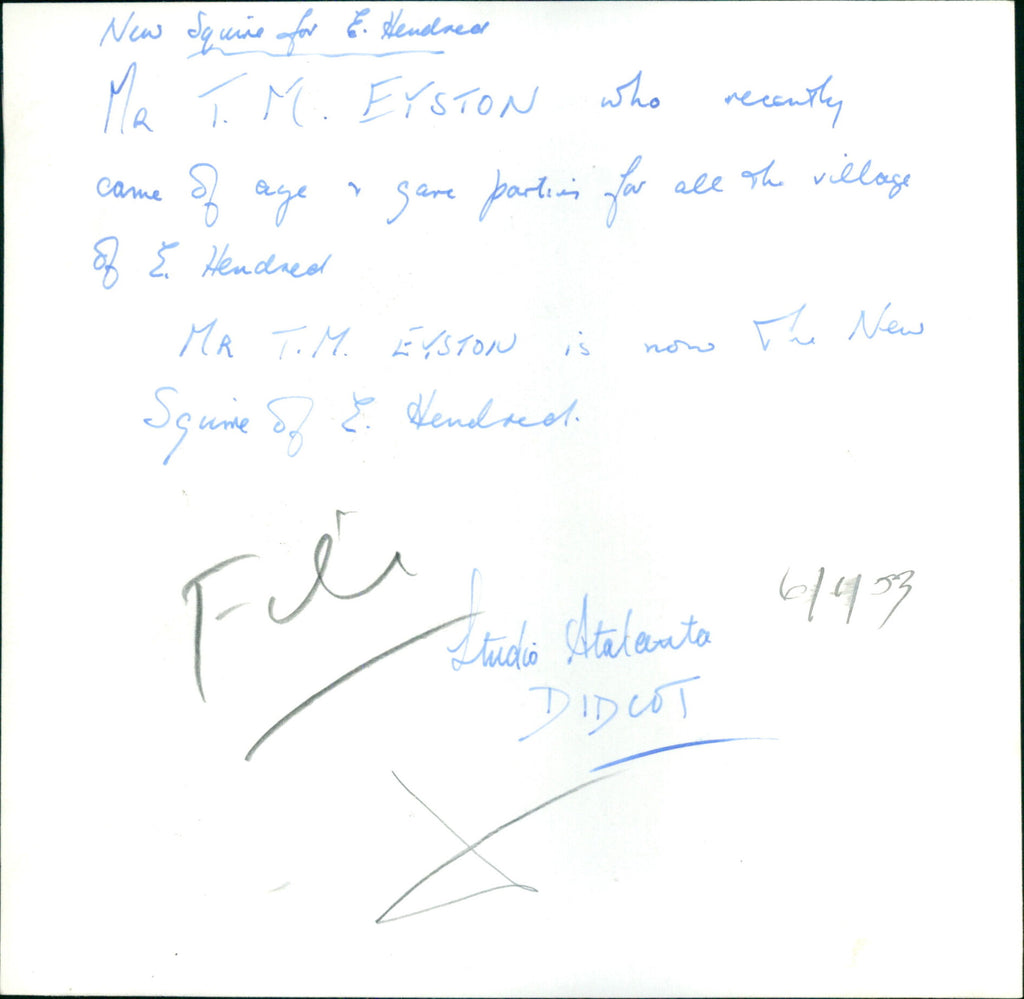 New Squire for E. Hendred
MR T. M. EYSTON who recently
came of age & gave parties for all the village
of E. Hendred
MR T.M. EYSTON is now the New
Squire of E. Hendred.
Studio Atalanta
DIDCOT